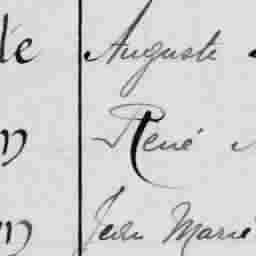 Auguste
René
Jean Marie